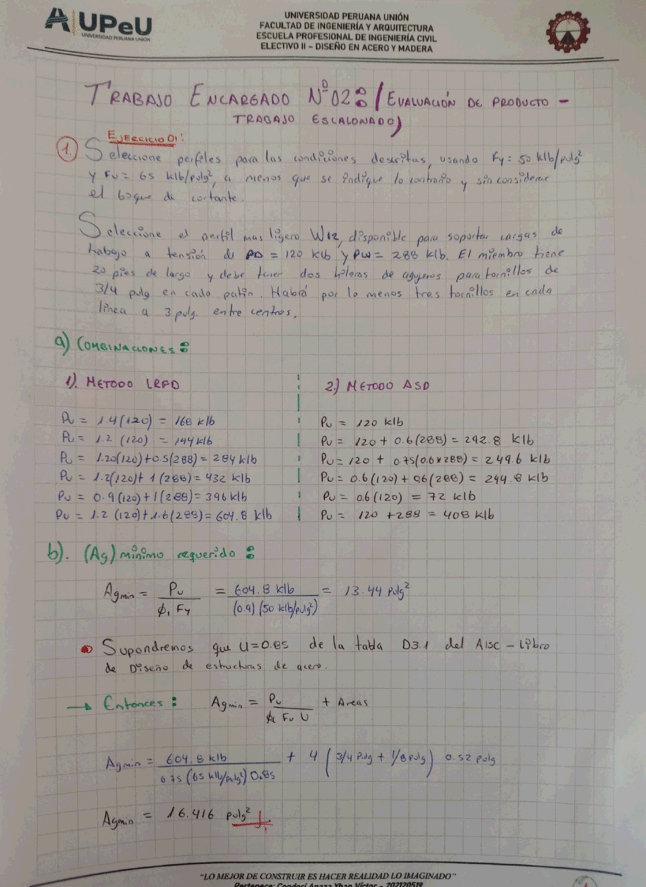 UPeU
UNIVERSIDAD PERUANA UNIÓN
UNIVERSIDAD PERUANA UNIÓN
FACULTAD DE INGENIERÍA Y ARQUITECTURA
ESCUELA PROFESIONAL DE INGENIERÍA CIVIL
ELECTIVO II – DISEÑO EN ACERO Y MADERA
TRABAJO ENCARGADO Nº 02: (EVALUACIÓN DE PRODUCTO -
TRABAJO ESCALONADO)
EJERCICIO 01:
1. Seleccione perfiles para las condiciones descritas, usando Fy = 50 klb/pulg²
y Fu = 65 klb/pulg², a menos que se indique lo contrario y sin considerar
el boque de cortante.
Seleccione el perfil mas ligero W12, disponible para soportar cargas de
trabajo a tensión de PD = 120 klb y PW = 288 klb. El miembro tiene
20 pies de largo y debe tener dos hileras de agujeros para tornillos de
3/4 pulg en cada patín. Habrá por lo menos tres tornillos en cada
línea a 3 pulg. entre centros.
a) COMBINACIONES:
1). METODO LRFD
2.) METODO ASD
Pu = 1.4(120) = 168 klb
Pu = 120 klb
Pu = 1.2 (120) = 144 klb
Pu = 120 + 0.6(288) = 292.8 klb
Pu = 1.20(120)+0.5(288) = 284 klb
Pu = 120 + 0.75(0.6x288) = 249.6 klb
Pu = 1.2(120)+ 1 (288) = 432 klb
Pu = 0.6(120) + 0.6(288) = 244.8 klb
Pu = 0.9(120)+1(288) = 396 klb
Pu = 0.6(120) = 72 klb
Pu = 1.2 (120)+1.6(288) = 604.8 klb
Pu = 120 +288 = 408 klb
b). (Ag) mínimo requerido:
Agmin = Pu / φt Fy = 604.8 klb / (0.9)(50 klb/pulg²) = 13.44 pulg²
Supondremos que U=0.85 de la tabla D3.1 del AISC - Libro
de Diseño de estructuras de acero.
→ Entonces: Agmin = Pu / φt Fu U + Areas
Agmin = 604.8 klb / 0.75 (65 klb/pulg²) 0.85 + 4 (3/4 pulg + 1/8 pulg) 0.52 pulg
Agmin = 16.416 pulg²
"LO MEJOR DE CONSTRUIR ES HACER REALIDAD LO IMAGINADO"
Pertenece: Condori Apaza Yhan Victor – 202120519